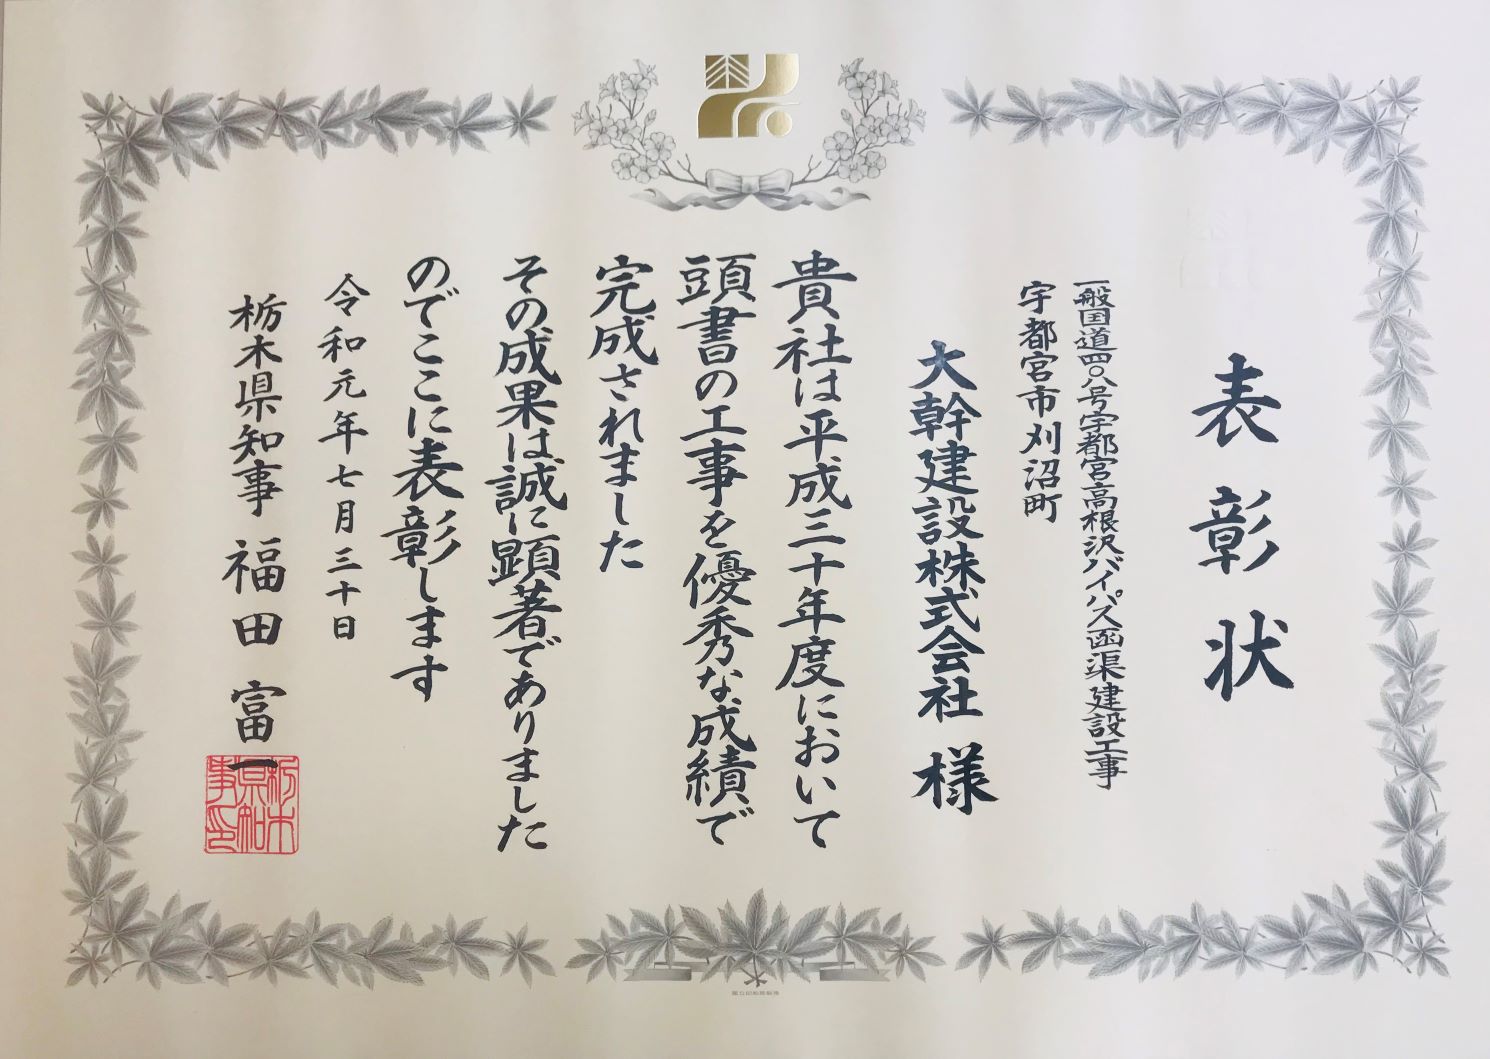 表彰状
一般国道四〇八号宇都宮高根沢バイパス函渠建設工事
宇都宮市刈沼町
大幹建設株式会社 様
貴社は平成三十年度において
頭書の工事を優秀な成績で
完成されました
その成果は誠に顕著でありました
のでここに表彰します
令和元年七月三十日
栃木県知事 福田富一
栃木県知事印